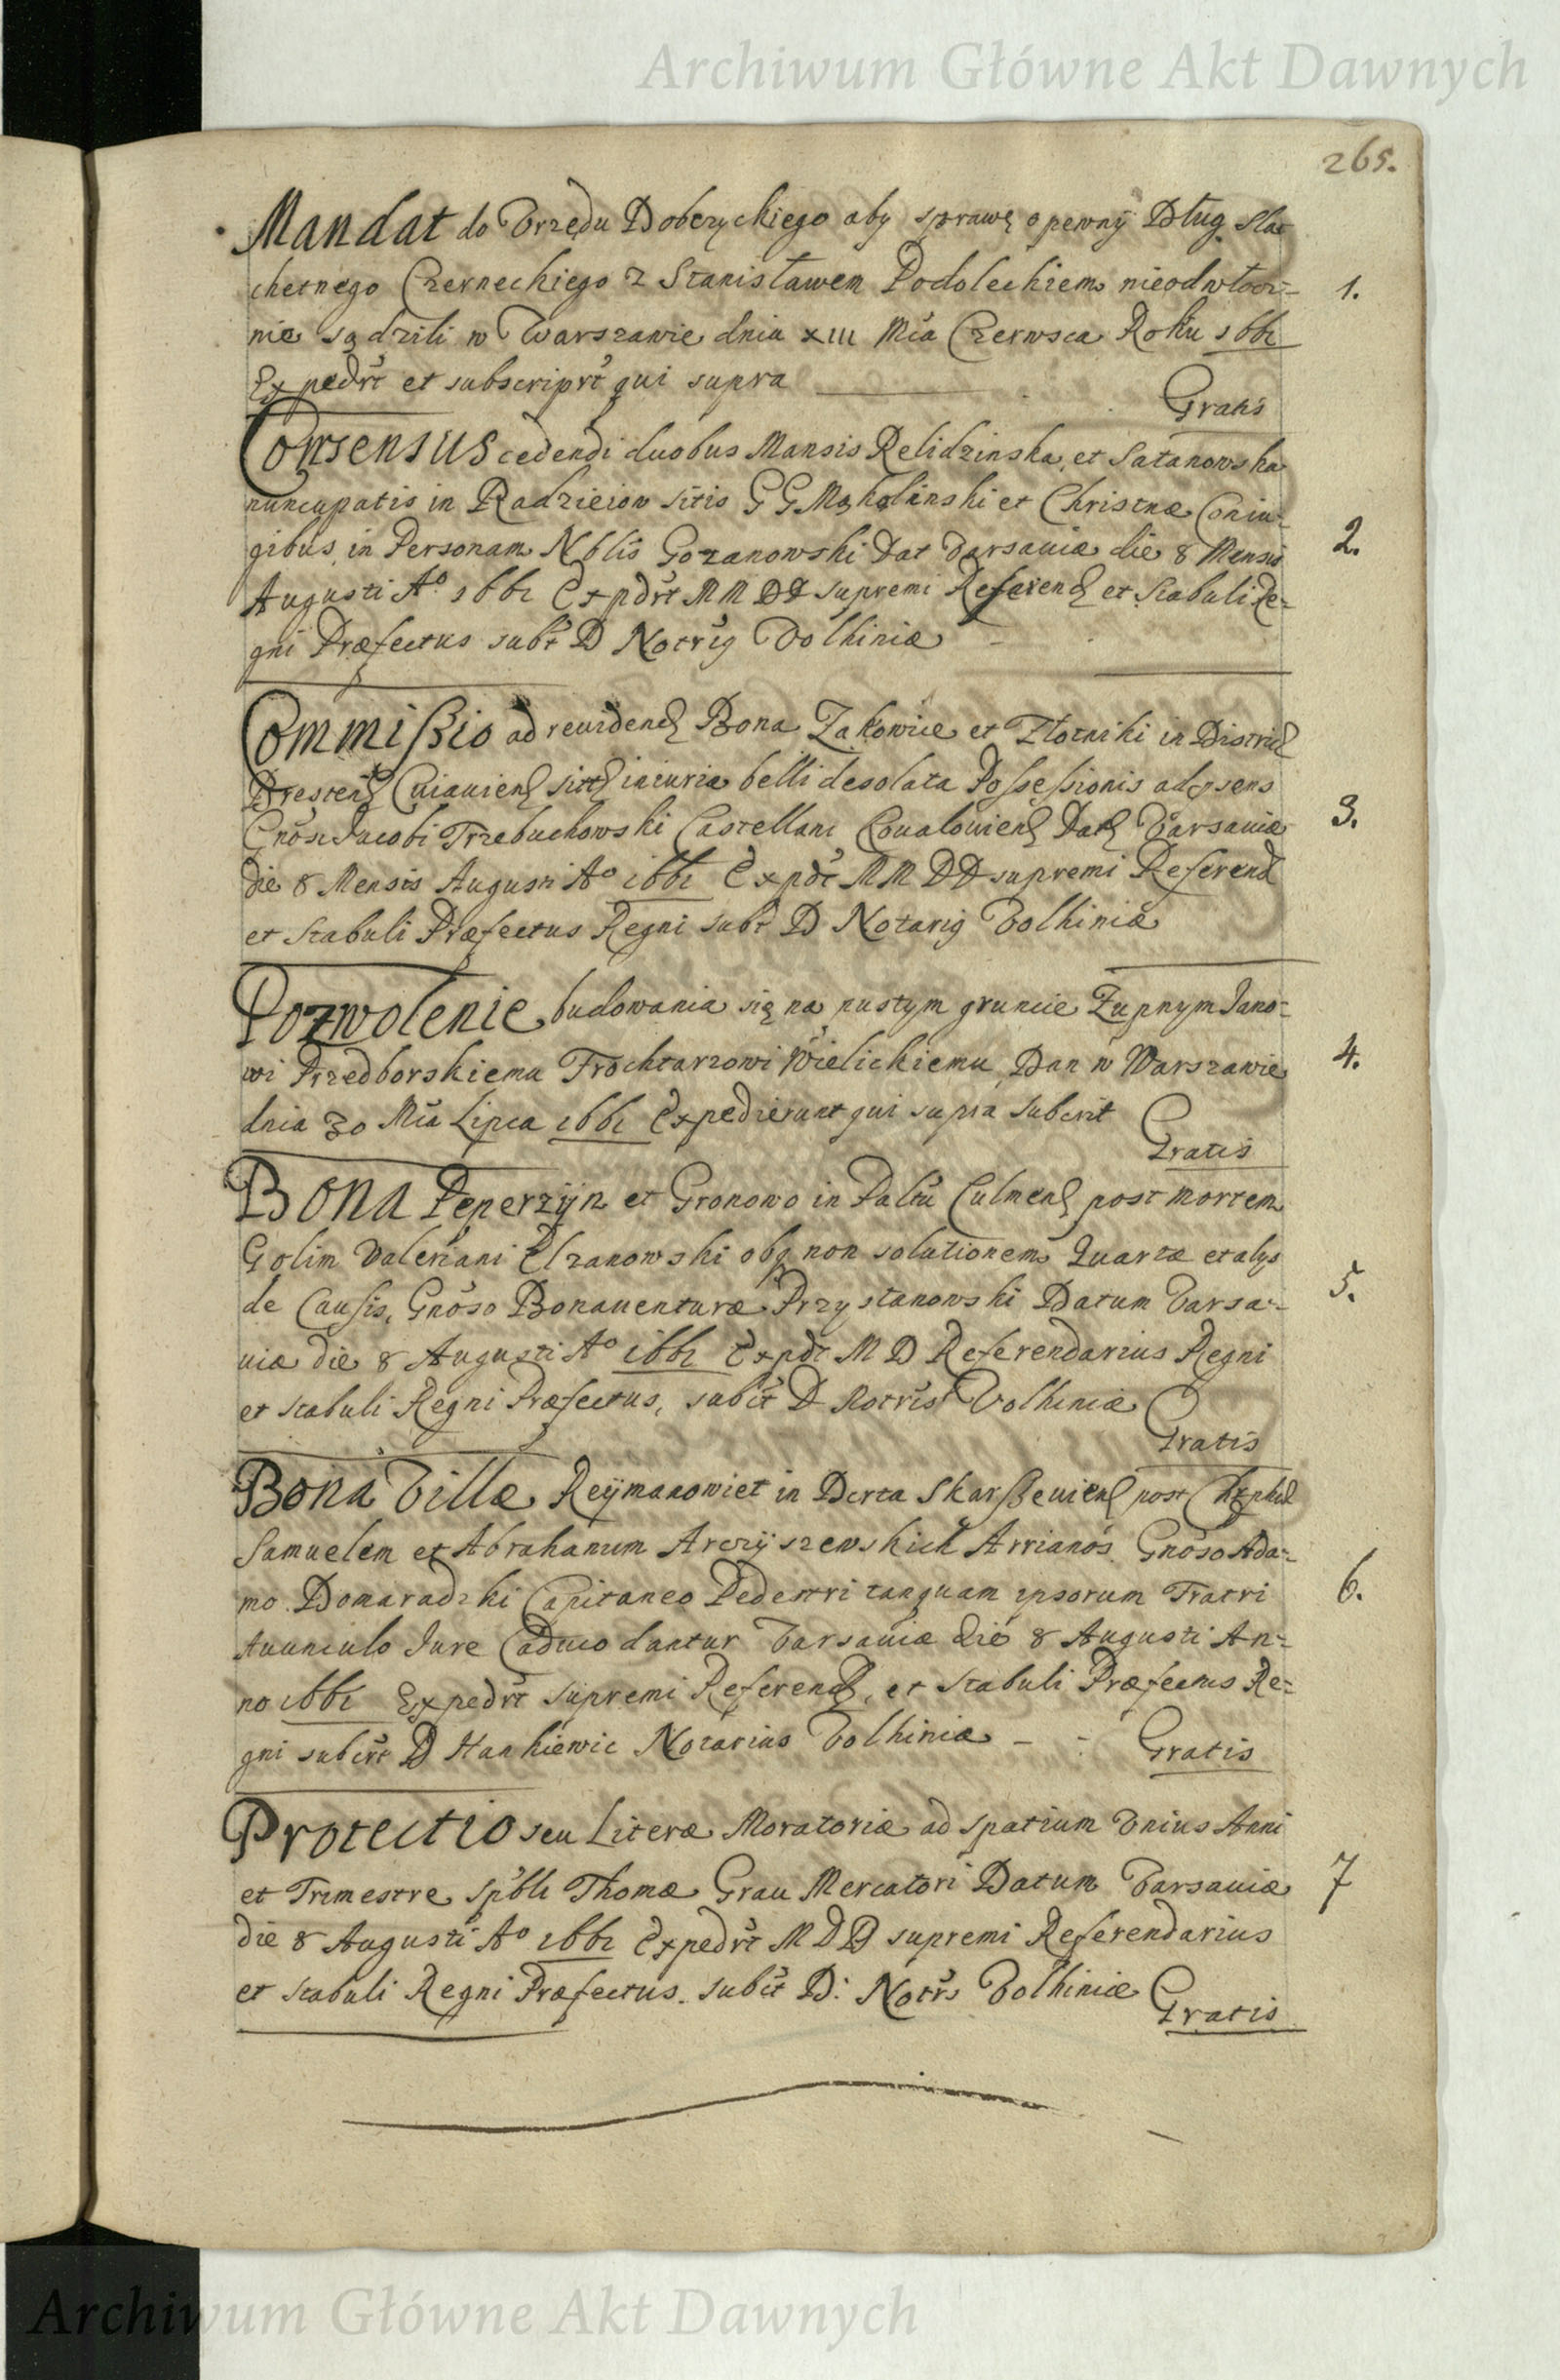 Archiwum Główne Akt Dawnych
265.
Mandat do Vrzędu Dobczyckiego aby sprawę o pewny Dług Sla-
chetnego Czerneckiego z Stanisławem Podoleckiem nieodwłocz-
nie sądzili w Warszawie dnia XIII Mca Czerwsca Roku 1661
Expedrt et subscripst qui supra
Gratis
1.
Consensus cedendi duobus Mansis Relidzinska, et Satanowska
nuncupatis in Radzieiow sitis GG Mąkolinski et Christinæ Coniu-
gibus in Personam Nblis Gozanowski Dat Varsaviæ die 8 Mensis
Augusti Aº 1661 Expdrt MM DD supremi Referend et Stabuli Re-
gni Præfectus subt D Notrig Volhiniæ
2.
Commissio ad revidend Bona Zakowice et Złotniki in District
Bresten Cuiavien sitt iniuria belli desolata Possessionis ad præsens
Gnosi Jacobi Trzebuchowski Castellani Covalovien Dat Varsaviæ
die 8 Mensis Augusti Aº 1661 Expdt MM DD supremi Referend
et Stabuli Præfectus Regni subt D Notarig Volhiniæ
3.
Pozwolenie budowania się na pustym gruncie Zupnym Jano-
wi Przedborskiemu Trochtarzowi Wielickiemu, Dan w Warszawie
dnia 30 Mca Lipca 1661 Expedierunt qui supra subcrit
Gratis
4.
Bona Peperzyn et Gronowo in Paltu Culmen post mortem
G olim Valeriani Elzanowski obq non solutionem Quartæ et alys
de Causis, Gnoso Bonaventuræ Przystanowski Datum Varsa-
viæ die 8 Augusti Aº 1661 Expdt M D Referendarius Regni
et Stabuli Regni Præfectus, subct D Notris Volhiniæ
Gratis
5.
Bona Villæ Reymanowiet in Dctu Skarszevien post
Samuelem et Abrahamum Arczyszewskich Arrianos Gnoso Ada-
mo Domaradzki Capitaneo Pedestri tanquam ipsorum Fratri
Avunculo Jure Caduco dantur Varsaviæ die 8 Augusti An-
no 1661 Expedrt supremi Referend, et Stabuli Præfectus Re-
gni subcrt D Hankiewic Notarius Volhiniæ - - Gratis
6.
Protectio seu Literæ Moratoriæ ad spatium Vnius Anni
et Trimestre, Spbli Thomæ Grau Mercatori Datum Varsaviæ
die 8 Augusti Aº 1661 Expedrt M D D supremi Referendarius
et Stabuli Regni Præfectus. subct D: Notrs Volhiniæ
Gratis
7
Archiwum Główne Akt Dawnych